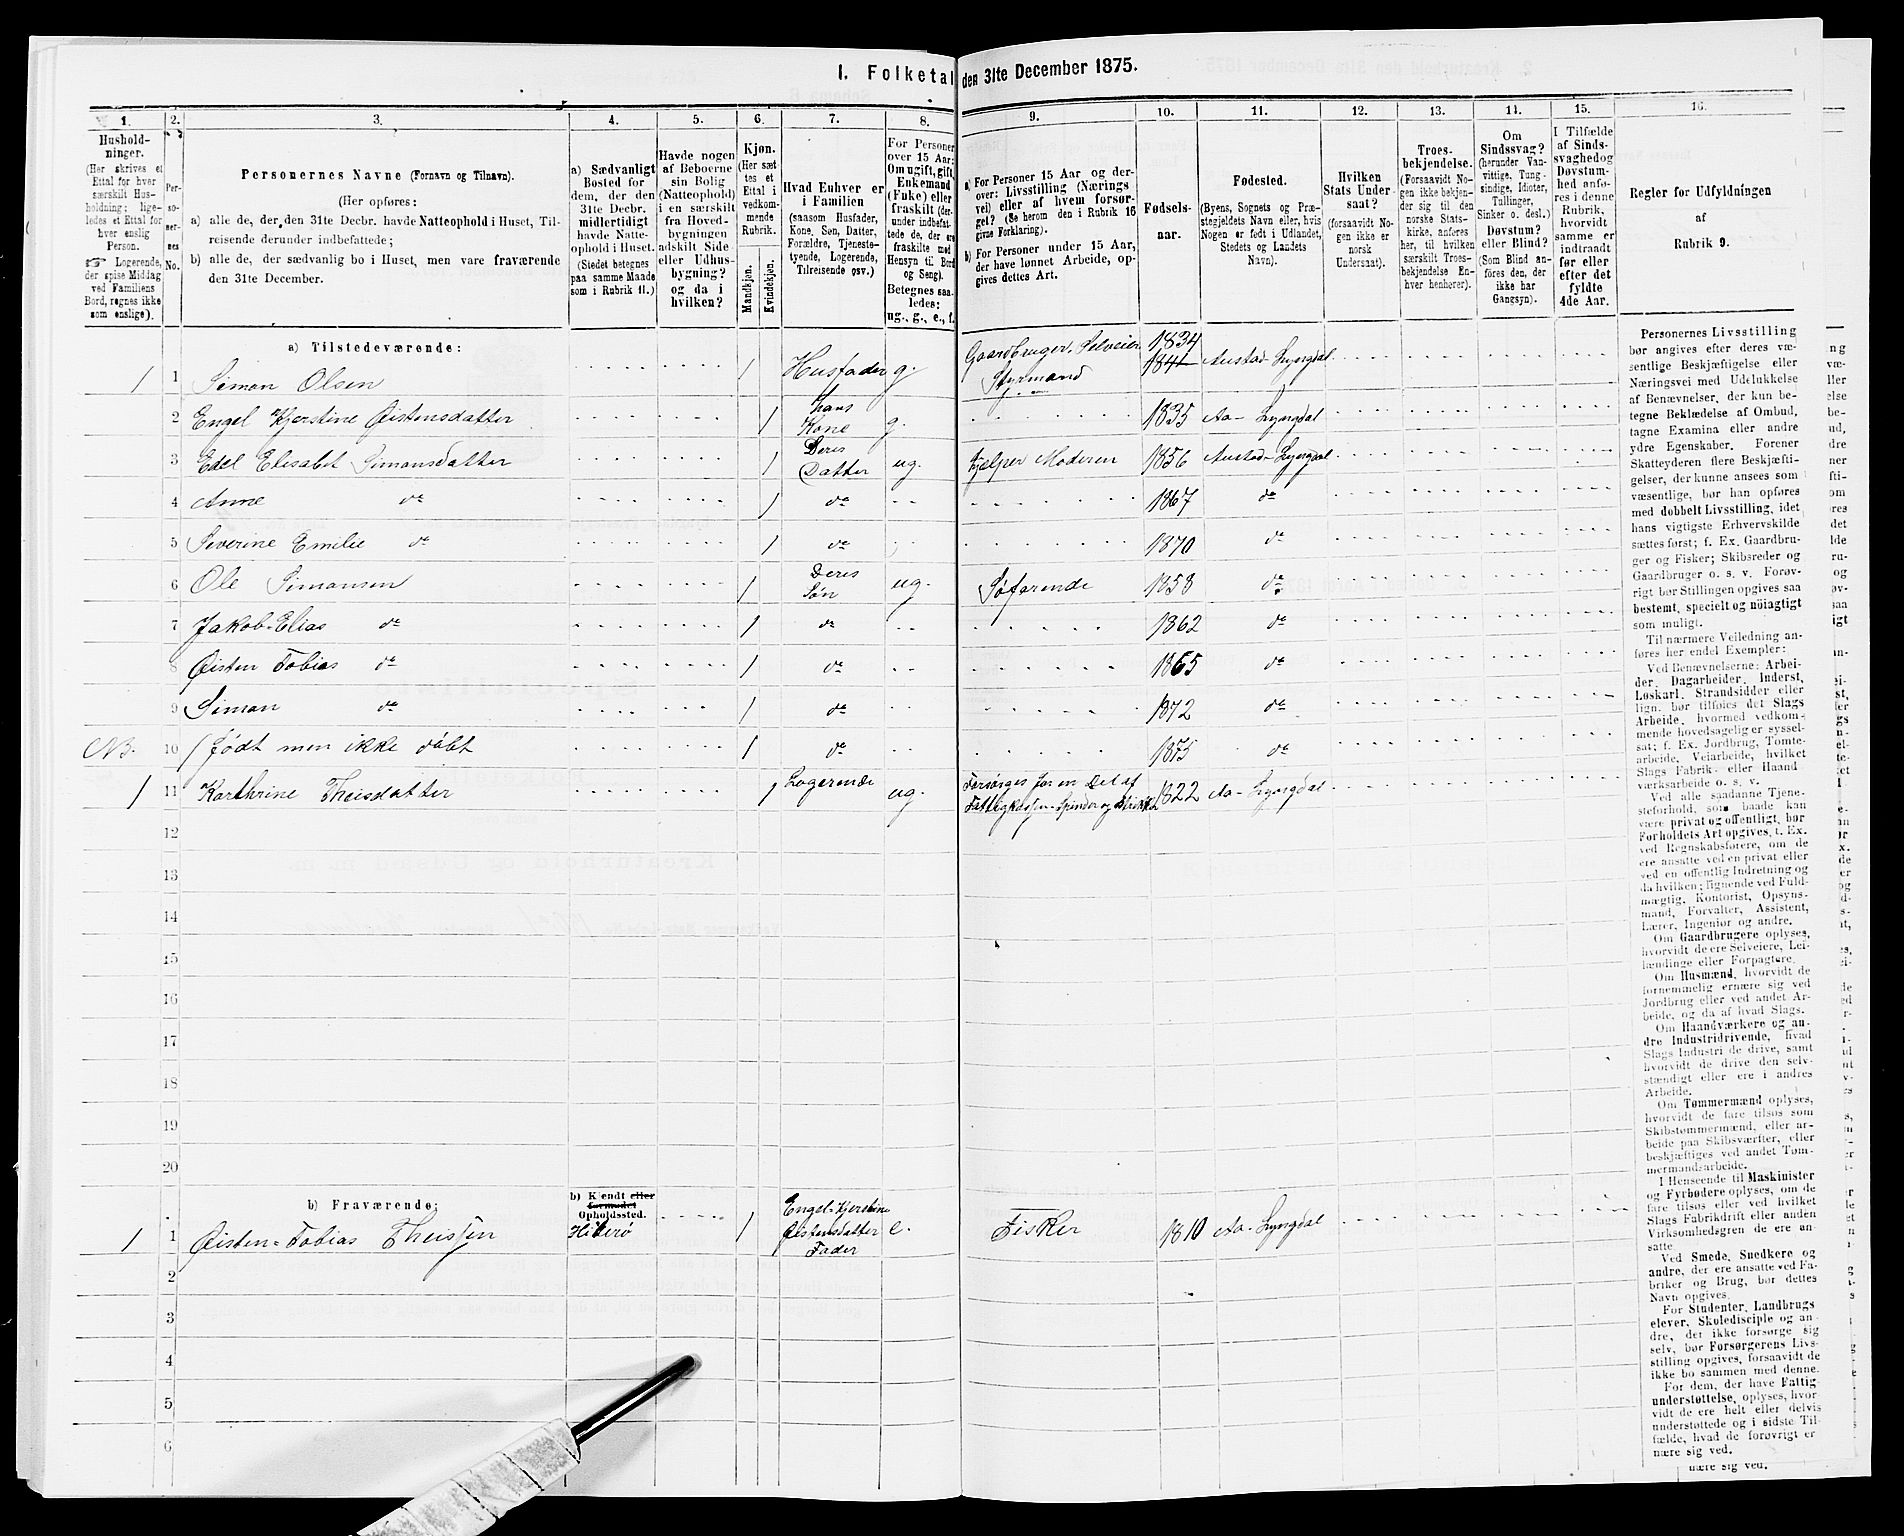 I. Folketal den 31te December 1875.
1. 2. 3. 4. 5. 6. 7. 8. 9. 10. 11. 12. 13. 14. 15. 16.
Hushold-
ninger.
(Her skrives et
Ettal for hver
særskilt Hus-
holdning; lige-
ledes et Ettal for
hver enslig
Person.
☞ Logerende,
der spise Middag
ved Familiens
Bord, regnes ikke
som enslige).
Per-
so-
ner-
nes
No.
Personernes Navne (Fornavn og Tilnavn).
(Her opføres:
a) alle de, der den 31te Decbr. havde Natteophold i Huset, Til-
reisende derunder indbefattede;
b) alle de, der sædvanlig bo i Huset, men vare fraværende
den 31te December.
a) Sædvanligt
Bosted for
dem, der den
31te Decbr.
midlertidigt
havde Natte-
ophold i Huset.
(Stedet betegnes
paa samme Maade
som i Rubrik 11.)
Havde nogen
af Beboerne
sin Bolig
(Natteophold)
i en særskilt
fra Hoved-
bygningen
adskilt Side
eller Udhus-
bygning?
og da i
hvilken?
Kjøn.
(Her sæt
tes et
Ettal i
vedkom-
mende
Rubrik.
Mandkjøn.
Kvindekjøn.
Hvad Enhver er
i Familien
(saasom Husfader,
Kone, Søn, Datter,
Forældre, Tjeneste-
tyende, Logerende,
Tilreisende osv.)
For Personer
over 15 Aar:
Om ugift, gift,
Enkemand
(Enke) eller
fraskilt (der-
under indbefat-
tede de, der ere
fraskilte med
Hensyn til Bord
og Seng).
Betegnes saa-
ledes:
ug., g., e., f.
a) For Personer 15 Aar og der-
over: Livsstilling (Nærings
vei) eller af hvem forsør-
get? (Se herom den i Rubrik 16
givne Forklaring).
b) For Personer under 15 Aar,
der have lønnet Arbeide, op-
gives dettes Art.
Fødsels-
aar.
Fødested.
(Byens, Sognets og Præ-
stegjeldets Navn eller, hvis
Nogen er født i Udlandet,
Stedets og Landets
Navn).
Hvilken
Stats Under-
saat?
(forsaavidt No-
gen ikke er
norsk
Undersaat).
Troes-
bekjendelse.
(Forsaavidt No-
gen ikke bekjen-
der sig til den
norske Stats-
kirke, anføres
her, til hvilken
særskilt Troes-
bekjendelse En-
hver henhører).
Om
Sindssvag?
(herunder Van-
vittige, Tung-
sindige, Idioter,
Tullinger,
Sinker o. desl.)
Døvstum?
eller Blind?
(Som Blind an-
føres den, der
ikke har
Gangsyn).
I Tilfælde
af Sinds-
svaghed og
Døvstum-
hed anfø-
res i denne
Rubrik,
hvorvidt
samme er
indtraadt
før eller
efter det
fyldte
4de Aar.
Regler for Udfyldningen
af
Rubrik 9.
a) Tilstedeværende:
1 1 Simon Olsen 1 Husfader g. Gaardbruger, Selveier Styrmand 1834 1841 Austad-Lyngdal
2 Engel Kjerstine Øistensdatter 1 hans Kone g. 1835 Aa-Lyngdal
3 Edel Elisabet Simonsdatter 1 Deres Datter ug. Hjælper Moderen 1856 Austad-Lyngdal
4 Anne do 1 do 1867 do
5 Severine Emilie do 1 do 1870 do
6 Ole Simonsen 1 Deres Søn ug. Søfarende 1858 do
7 Jakob-Elias do 1 do 1862 do
8 Øisten Tobias do 1 do 1865 do
9 Simon do 1 do 1872 do
NB. 10 født men ikke døbt 1 do 1875 do
1 11 Karthrine Theisdatter 1 Logerende ug. Forsørges for en Del af Fattigkassen - Spinder og 1822 Aa-Lyngdal
12
13
14
15
16
17
18
19
20
b) Fraværende:
b) Kjendt eller
formodet
Opholdssted.
1 1 Øisten-Tobias Theissen Hiterø 1 Engel-Kjerstine Øistensdatter Fader e. Fisker 1810 Aa-Lyngdal
2
3
4
5
6
Personernes Livsstilling
bør angives efter deres væ-
sentlige Beskjæftigelse eller
Næringsvei med Udelukkelse
af Benævnelser, der kun be-
tegne Beklædelse af Ombud,
tagne Examina eller andre
ydre Egenskaber. Forener
Skatteyderen flere Beskjæfti-
gelser, der kunne ansees som
væsentlige, bør han opføres
med dobbelt Livsstilling, idet
hans vigtigste Erhvervskilde
sættes først; f. Ex. Gaardbru-
ger og Fisker; Skibsreder og
Gaardbruger o. s. v. Forøv-
rigt bør Stillingen opgives saa
bestemt, specielt og nöiagtigt
som muligt.
Til nærmere Veiledning an-
føres her endel Exempler:
Ved Benævnelserne: Arbei-
der, Dagarbeider, Inderst,
Løskarl, Strandsidder eller
lign. bør tilføies det Slags
Arbeide, hvormed vedkom-
mende hovedsagelig er syssel-
sat; f. Ex. Jordbrug, Tomte-
arbeide, Veiarbeide, hvilket
Slags Fabrik- eller Haand
værksarbeide o. s. v.
Ved alle saadanne Tjene-
steforhold, som baade kan
være privat og offentligt, bør
Forholdets Art opgives, t. Ex.
ved Regnskabsførere, om de
ere ansatte ved en privat eller
ved en offentlig Indretning og
da hvilken; lignende ved Fuld-
mægtig, Kontorist, Opsyns-
mand, Forvalter, Assistent,
Lærer, Ingeniør og andre.
Om Gaardbrugere oplyses,
hvorvidt de ere Selveiere, Lei-
lændinge eller Forpagtere.
Om Husmænd, hvorvidt de
fornemmelig ernære sig ved
Jordbrug eller ved andet Ar-
beide, og da af hvad Slags.
Om Haandværkere og an-
dre Industridrivende, hvad
Slags Industri de drive, samt
hvorvidt de drive den selv-
stændigt eller ere i andres
Arbeide.
Om Tømmermænd oplyses,
hvorvidt de fare tilsøs som
Skibstømmermænd, eller ar-
beide paa Skibsværfter, eller
beskjæftiges ved andet Tøm-
mermandsarbeide.
I Henseende til Maskinister
og Fyrbødere oplyses, om de
fare tilsøs eller ved hvilket
Slags Fabrikdrift eller anden
Virksomhedsgren de ere an-
satte
Ved Smede, Snedkere og
andre, der ere ansatte ved Fa-
briker og Brug, bør dettes
Navn opgives.
For Studenter, Landbrugs
elever, Skoledisciple og an-
dre, der ikke forsørge sig
selv, bør Forsørgerens Livs-
stilling opgives, forsaavidt de
ikke bo sammen med denne.
For dem, der have Fattig-
understøttelse, oplyses, hvor-
vidt de ere helt eller delvis
understøttede og i sidste Til-
fælde, hvad de forøvrigt er
nære sig ved.
nære sig ved.